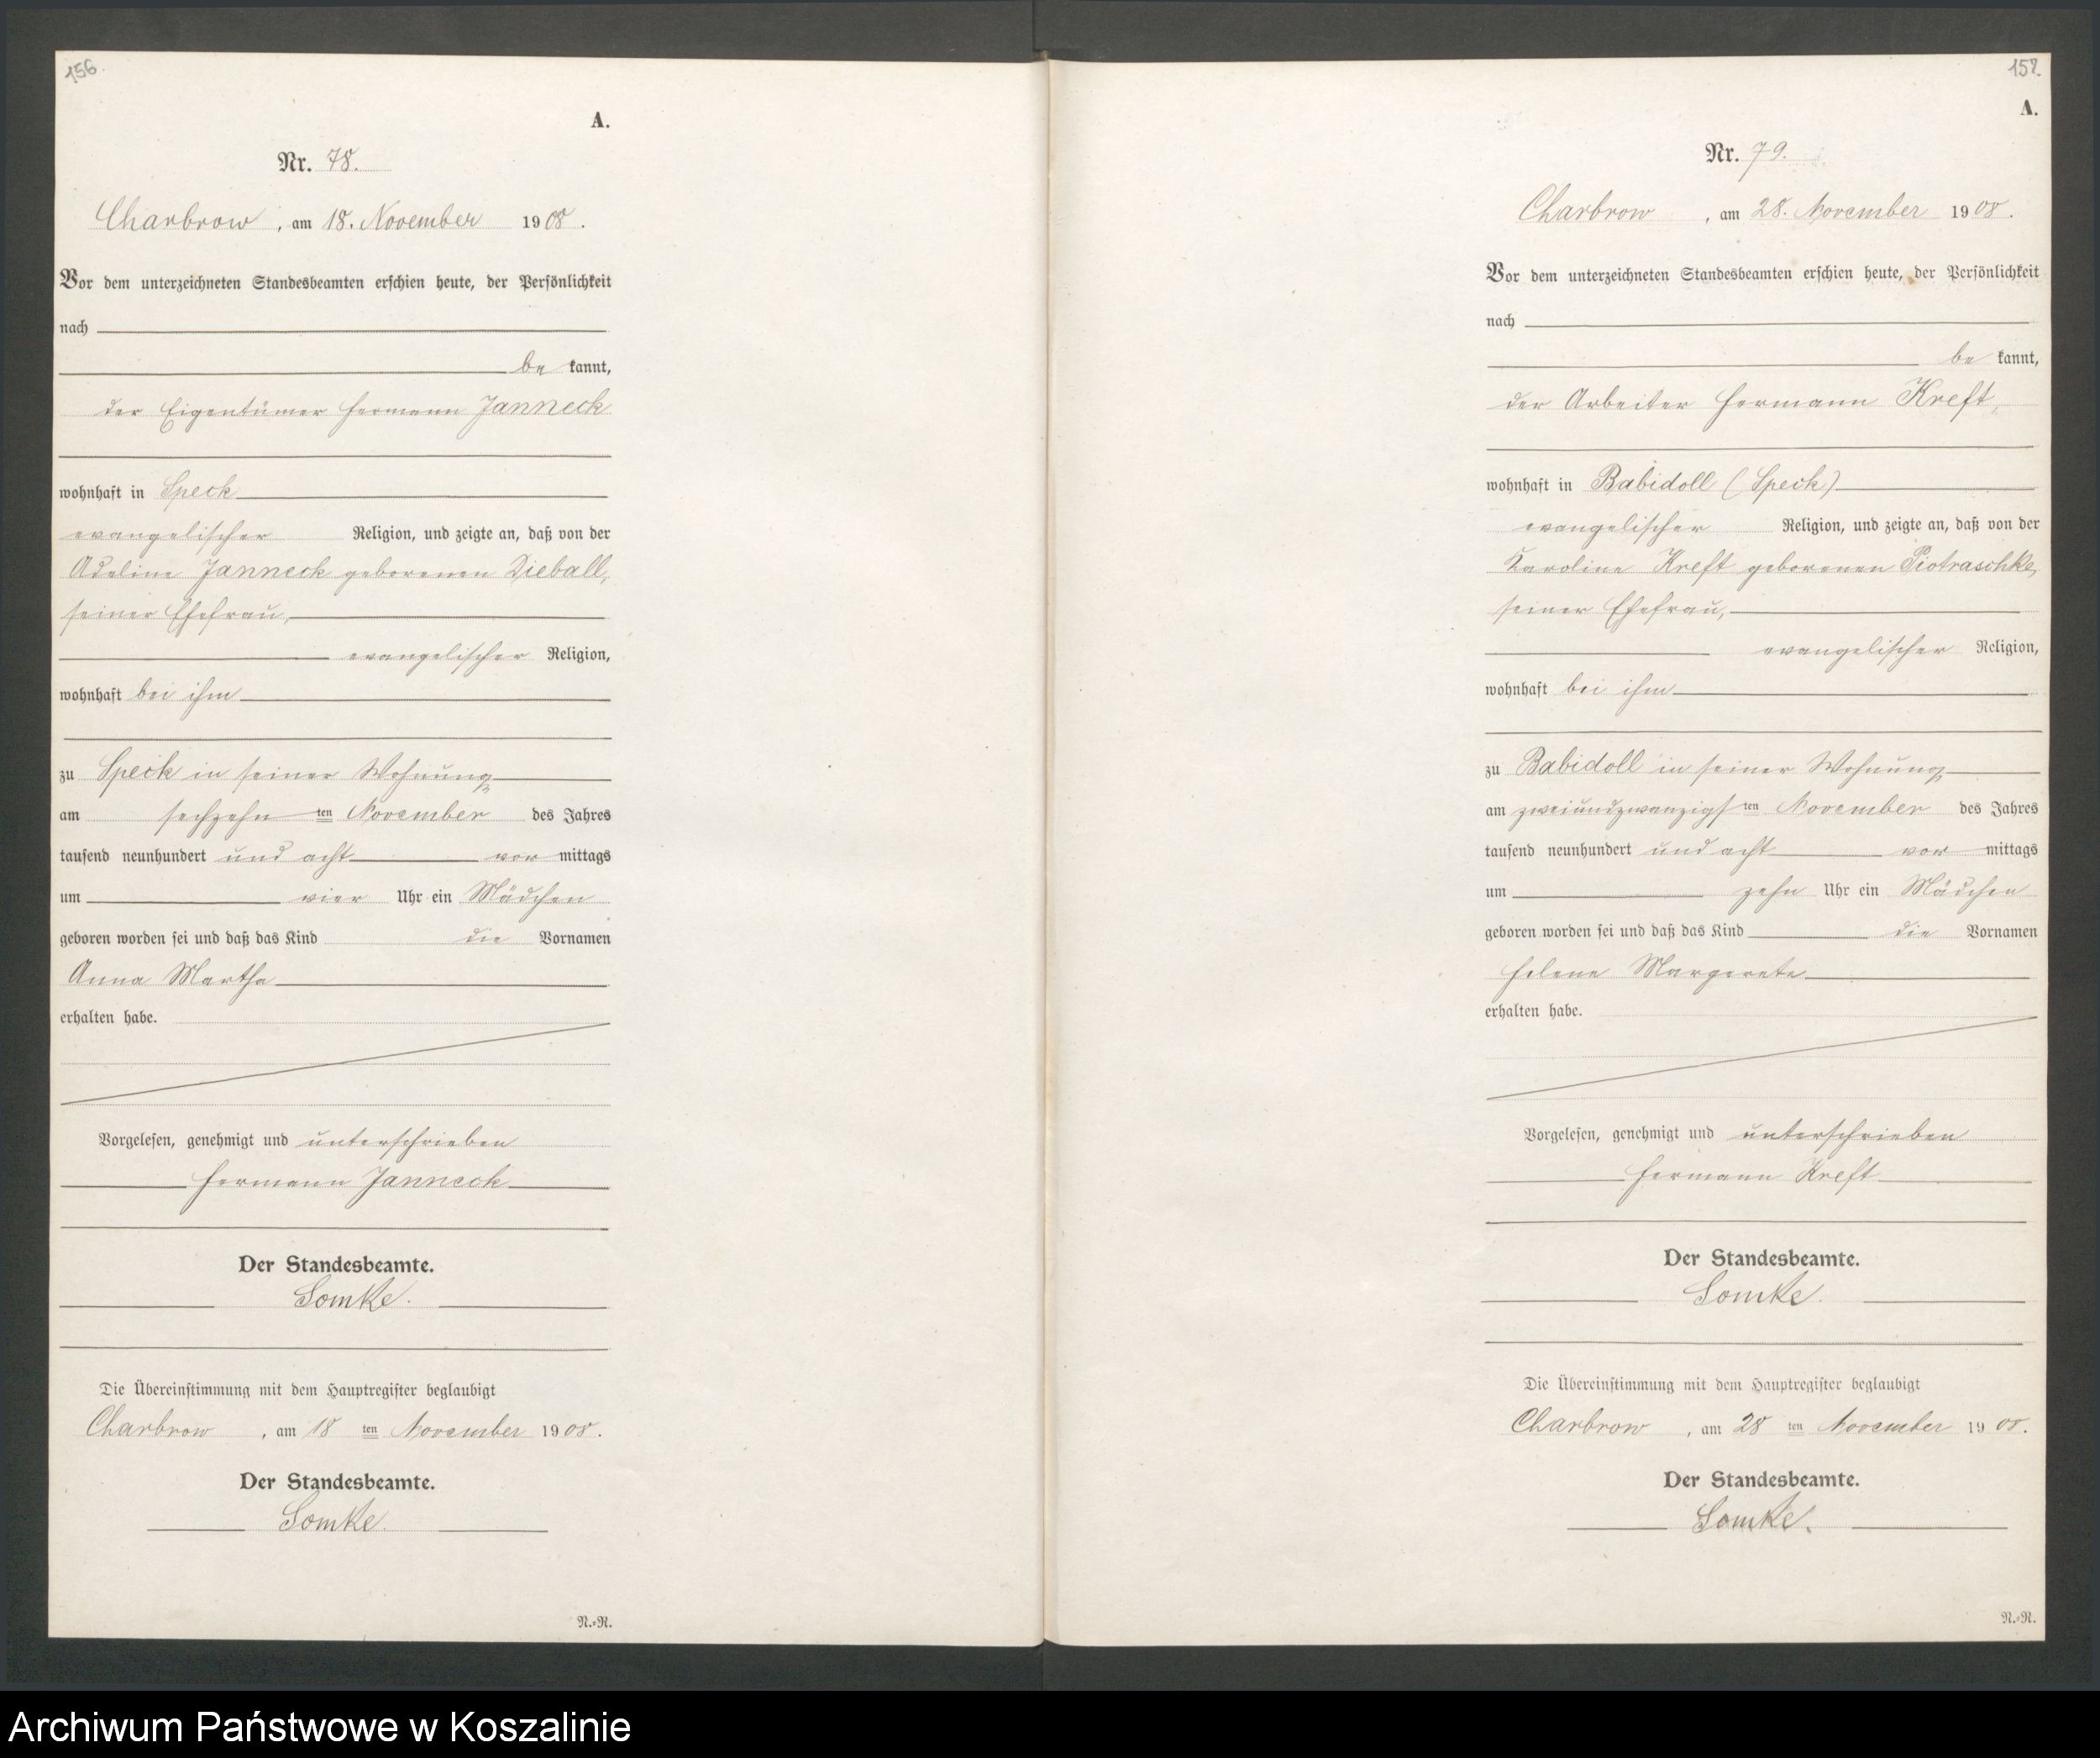 156.
A.
Nr. 78.
Charbrow, am 18. November 1908.
Vor dem unterzeichneten Standesbeamten erschien heute, der Persönlichkeit
nach
be kannt,
der Eigentümer Hermann Janneck
wohnhaft in Speck
evangelischer Religion, und zeigte an, daß von der
Adeline Janneck geborenen Dieball,
seiner Ehefrau,
evangelischer Religion,
wohnhaft bei ihm
zu Speck in seiner Wohnung
am sechzehn ten November des Jahres
tausend neunhundert und acht vor mittags
um vier Uhr ein Mädchen
geboren worden sei und daß das Kind die Vornamen
Anna Martha
erhalten habe.
Vorgelesen, genehmigt und unterschrieben
Hermann Janneck
Der Standesbeamte.
Lomke.
Die Übereinstimmung mit dem Hauptregister beglaubigt
Charbrow, am 18 ten November 1908.
Der Standesbeamte.
Lomke.
N.=N.
157.
A.
Nr. 79.
Charbrow, am 28. November 1908.
Vor dem unterzeichneten Standesbeamten erschien heute, der Persönlichkeit
nach
be kannt,
der Arbeiter Hermann Kreft,
wohnhaft in Babidoll (Speck)
evangelischer Religion, und zeigte an, daß von der
Karoline Kreft geborenen Piotraschke,
seiner Ehefrau,
evangelischer Religion,
wohnhaft bei ihm
zu Babidoll in seiner Wohnung
am zweiundzwanzigs ten November des Jahres
tausend neunhundert und acht vor mittags
um zehn Uhr ein Mädchen
geboren worden sei und daß das Kind die Vornamen
Helene Margerete
erhalten habe.
Vorgelesen, genehmigt und unterschrieben
Hermann Kreft
Der Standesbeamte.
Lomke.
Die Übereinstimmung mit dem Hauptregister beglaubigt
Charbrow, am 28 ten November 1908.
Der Standesbeamte.
Lomke.
N.=N.
Archiwum Państwowe w Koszalinie